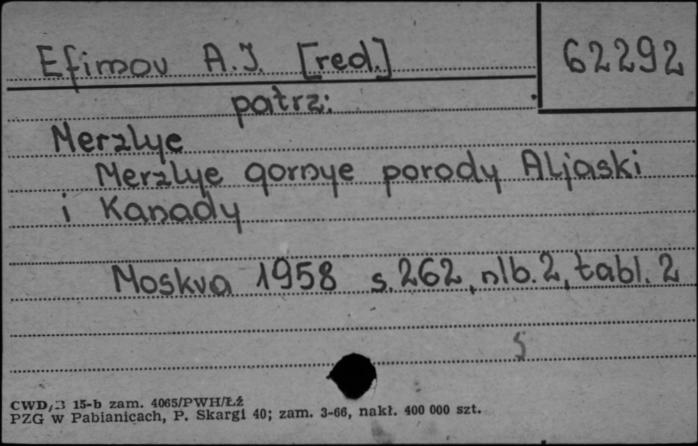 Efimov A.I. [red.]
62292
patrz:
Merzlye
Merzlye gornye porody Aljaski
i Kanady
Moskva 1958 s.262, nlb.2, tabl.2
5
CWD/B 15-b zam. 4065/PWH/Łź
PZG w Pabianicach, P. Skargi 40; zam. 3-66, nakł. 400 000 szt.